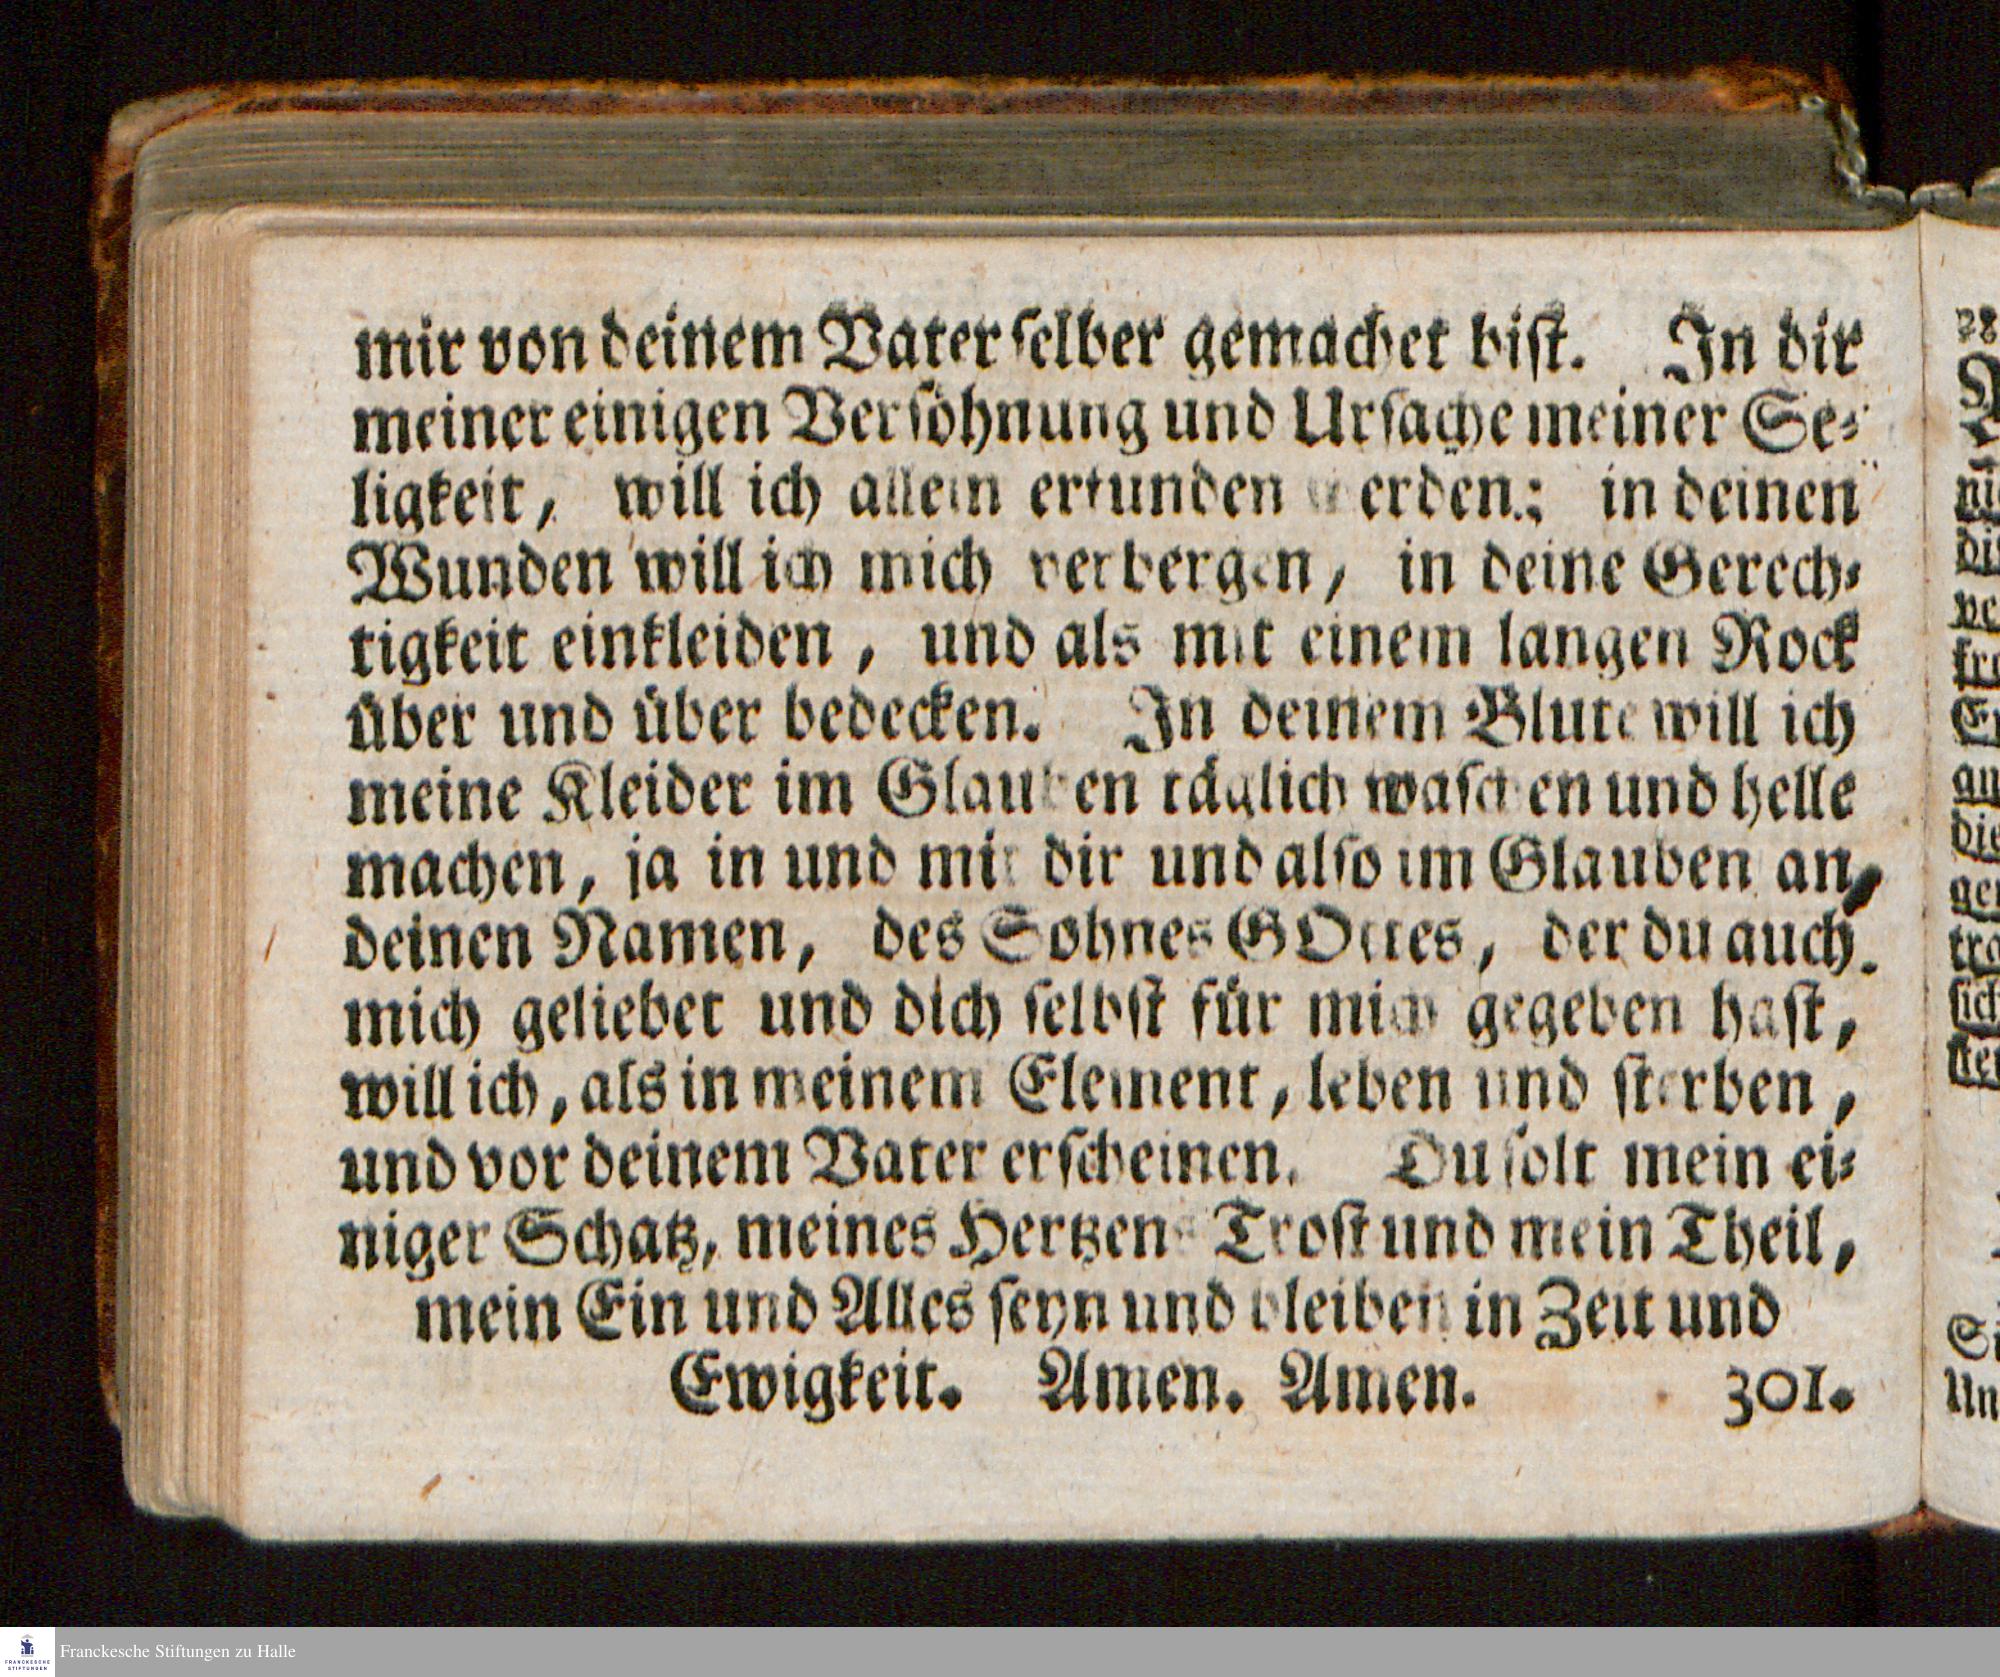 mir von deinem Vater selber gemachet bist. In dir
meiner einigen Versöhnung und Ursache meiner Se-
ligkeit, will ich allein erfunden werden; in deinen
Wunden will ich mich verbergen, in deine Gerech-
tigkeit einkleiden, und als mit einem langen Rock
über und über bedecken. In deinem Blute will ich
meine Kleider im Glauben täglich waschen und helle
machen, ja in und mit dir und also im Glauben an
deinen Namen, des Sohnes GOttes, der du auch
mich geliebet und dich selbst für mich gegeben hast,
will ich, als in meinem Element, leben und sterben,
und vor deinem Vater erscheinen. Du solt mein ei-
niger Schatz, meines Hertzens Trost und mein Theil,
mein Ein und Alles seyn und bleiben in Zeit und
Ewigkeit. Amen. Amen. 301.
Franckesche Stiftungen zu Halle
FRANCKESCHE
STIFTUNGEN